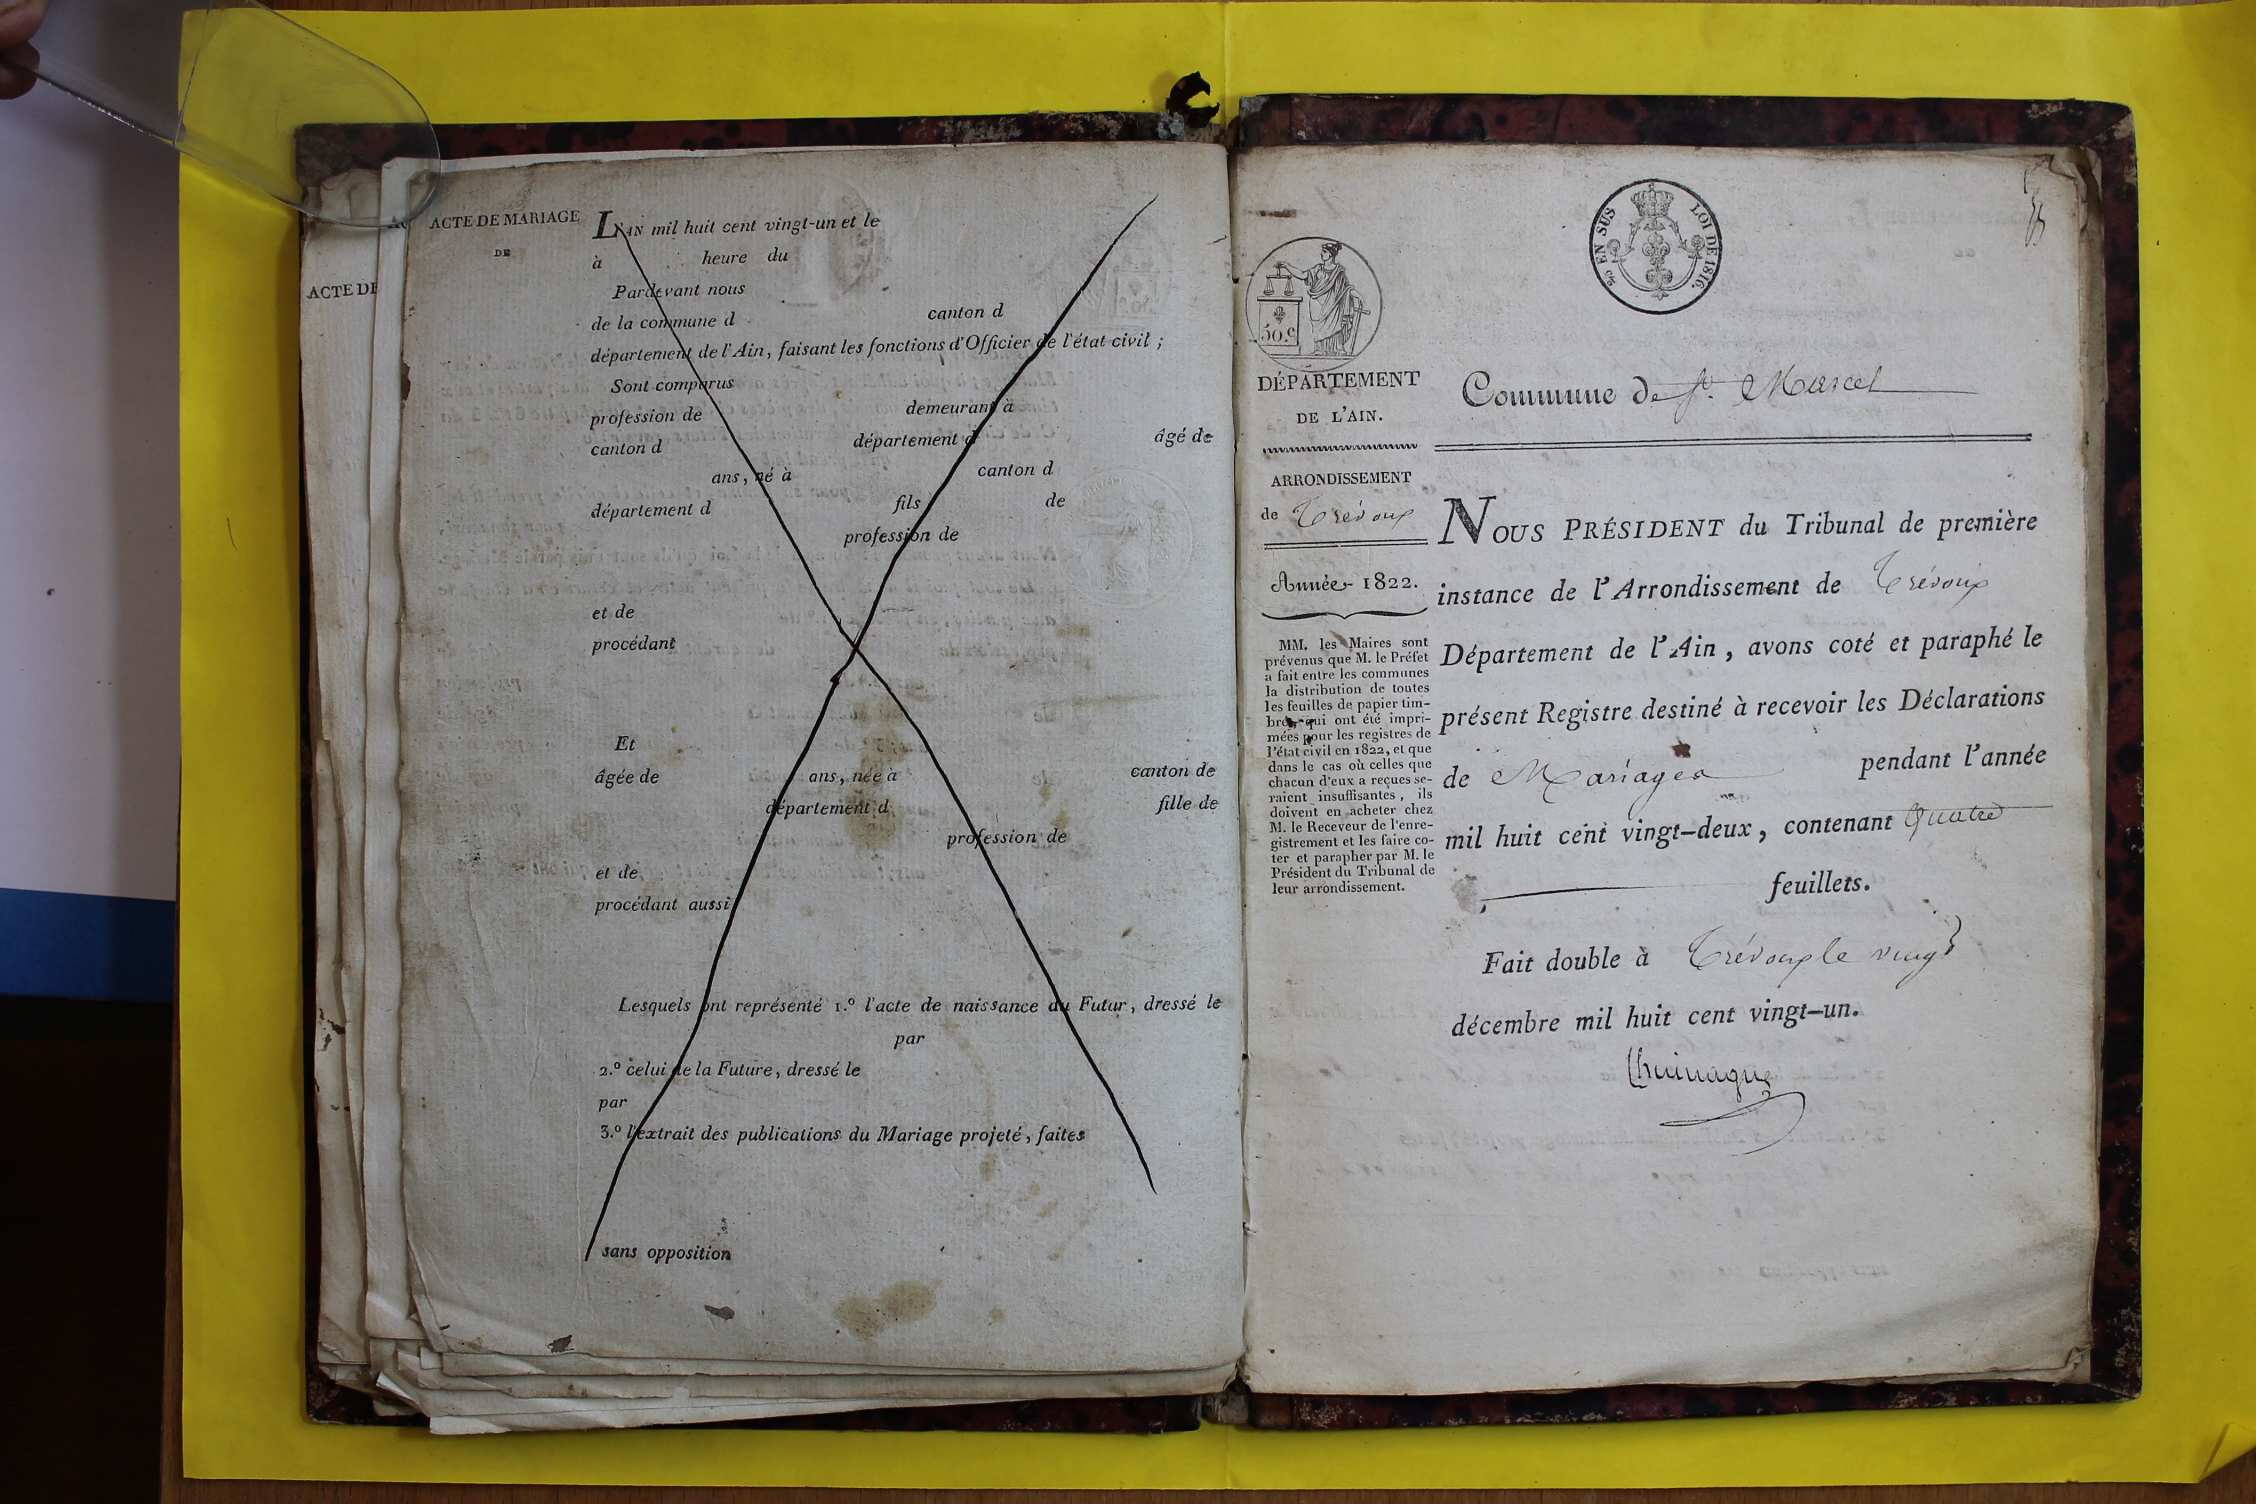 ACTE DE
ACTE DE MARIAGE
DE
L'AN mil huit cent vingt-un et le
à heure du
Pardevant nous
de la commune d canton d
département de l'Ain, faisant les fonctions d'Officier de l'état civil ;
Sont comparus
profession de demeurant à
canton d département d âgé de
ans, né à canton d
département d fils de
profession de
et de
procédant
Et
âgée de ans, née à canton de
département d fille de
profession de
et de
procédant aussi
Lesquels ont représenté 1.º l'acte de naissance du Futur, dressé le
par
2.º celui de la Future, dressé le
par
3.º l'extrait des publications du Mariage projeté, faites
sans opposition
EN SUS LOI DE 1816.
50.c
DÉPARTEMENT
DE L'AIN.
ARRONDISSEMENT
de Trévoux
Année 1822.
MM. les Maires sont
prévenus que M. le Préfet
a fait entre les communes
la distribution de toutes
les feuilles de papier tim-
bré qui ont été impri-
mées pour les registres de
l'état civil en 1822, et que
dans le cas où celles que
chacun d'eux a reçues se-
raient insuffisantes, ils
doivent en acheter chez
M. le Receveur de l'enre-
gistrement et les faire co-
ter et parapher par M. le
Président du Tribunal de
leur arrondissement.
Commune de St. Marcel
NOUS PRÉSIDENT du Tribunal de première
instance de l'Arrondissement de Trévoux
Département de l'Ain, avons coté et paraphé le
présent Registre destiné à recevoir les Déclarations
de Mariages pendant l'année
mil huit cent vingt-deux, contenant Quatre
feuillets.
Fait double à Trévoux le vingt
décembre mil huit cent vingt-un.